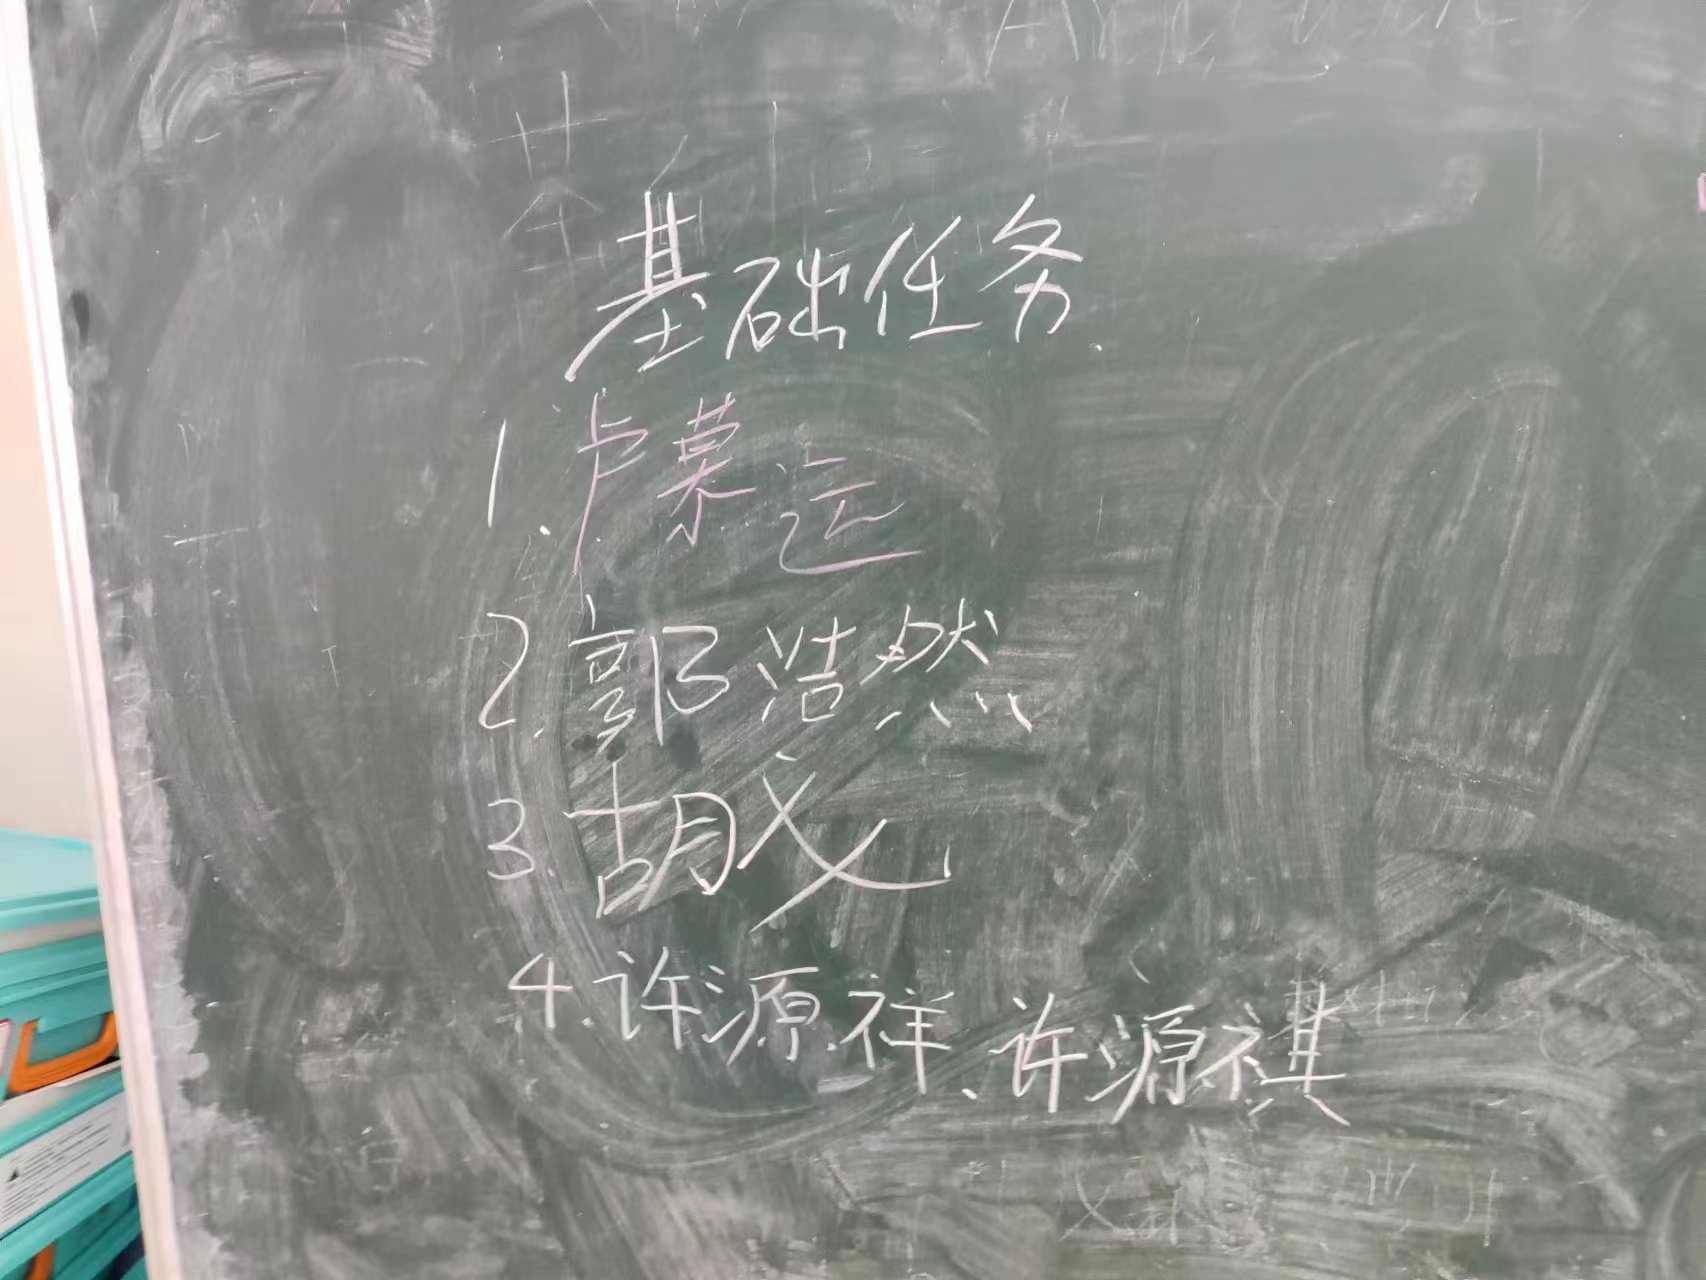 基础任务.
1.卢慕运
2.郭浩然
3.胡义
4.许源祥、许源祺